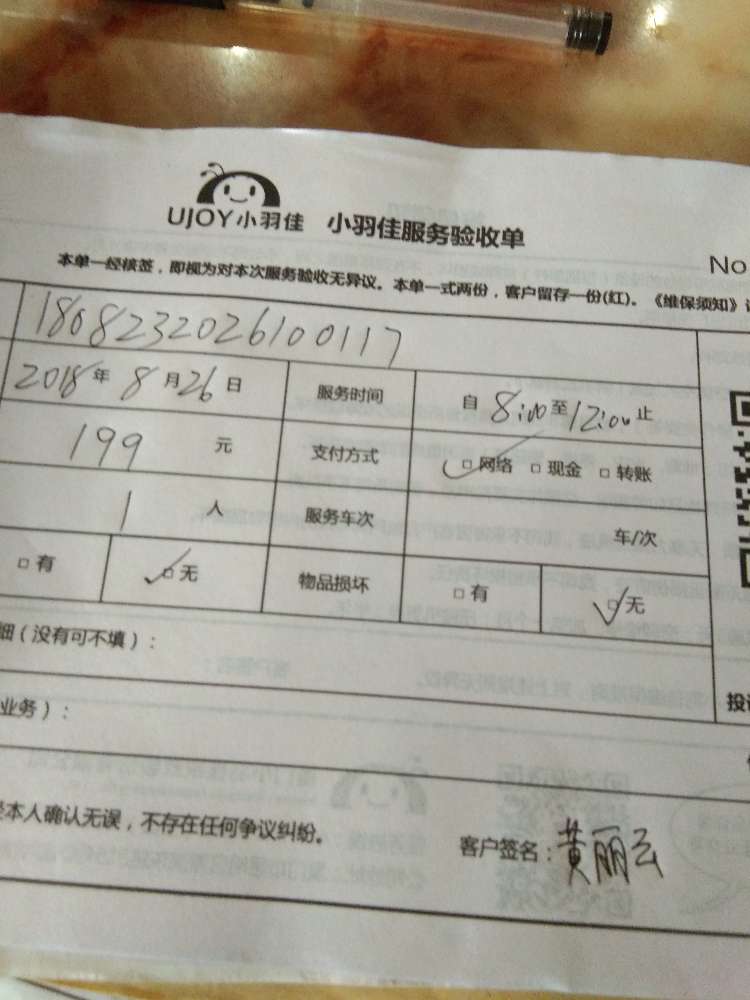 UJOY小羽佳 小羽佳服务验收单
No
本单一经核签，即视为对本次服务验收无异议。本单一式两份，客户留存一份(红)。《维保须知》
1808232026100117
2018年8月26日 服务时间 自8:00至12:00止
199元 支付方式 □网络 □现金 □转账
1人 服务车次 车/次
□有 □无 物品损坏 □有 □无
细（没有可不填）：
投诉
业务）：
本人确认无误，不存在任何争议纠纷。 客户签名：黄丽云